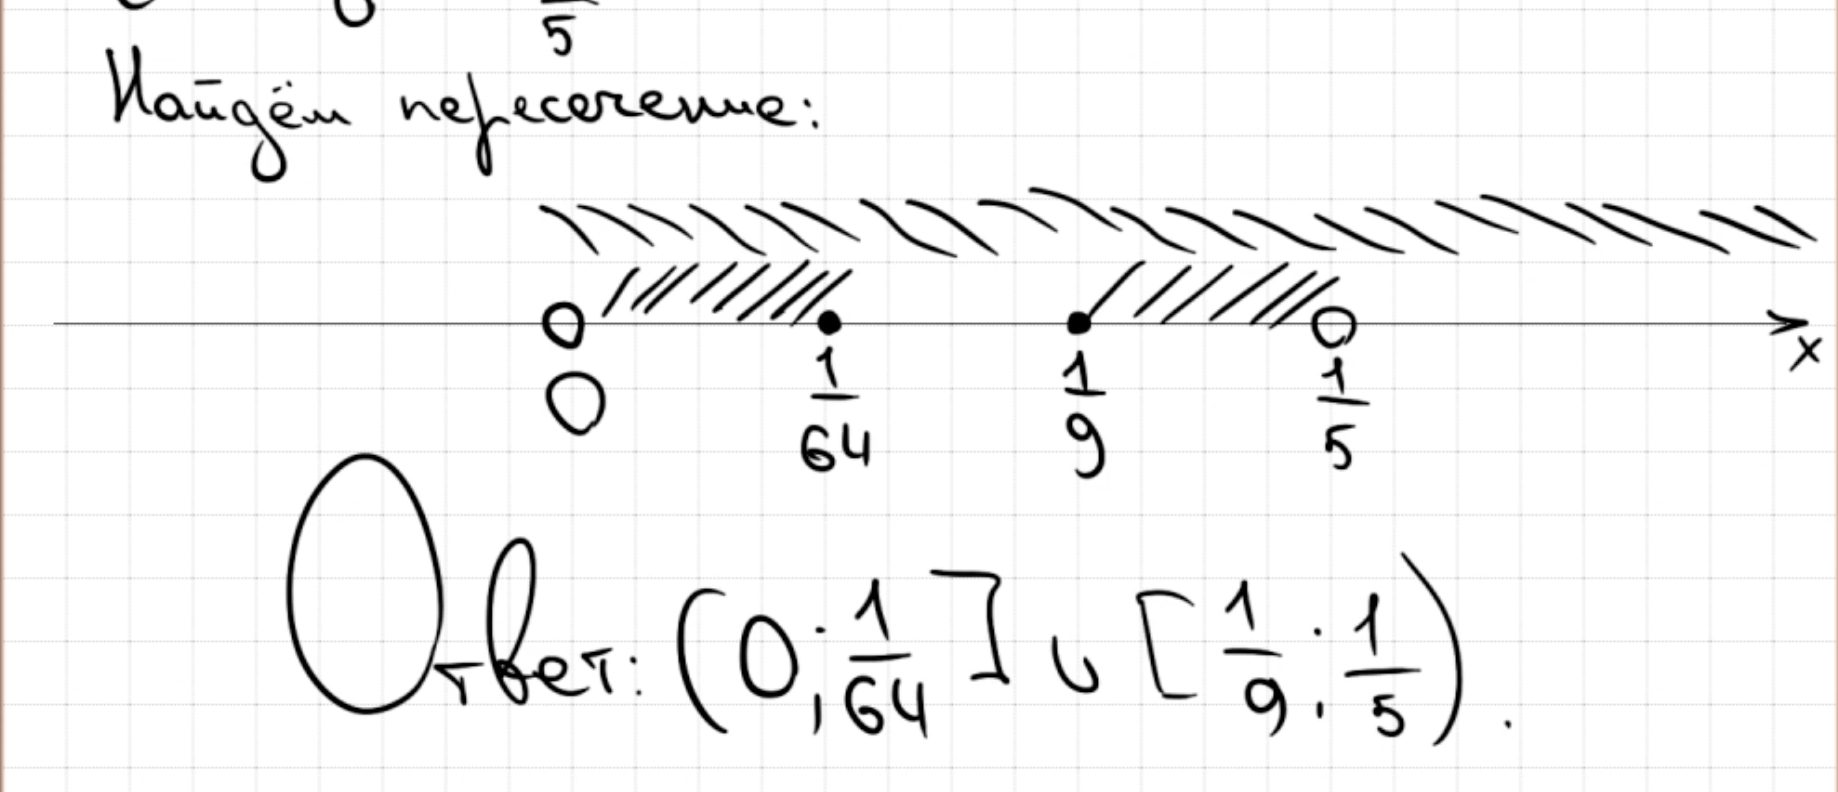 5
Найдём пересечение:
0 1/64 1/9 1/5 x
Ответ: (0; 1/64] ∪ [1/9; 1/5).